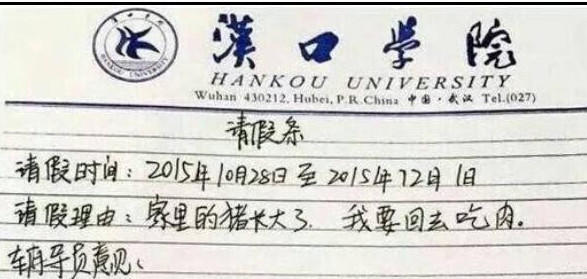 漢口學院
HANKOU UNIVERSITY
Wuhan 430212, Hubei, P.R.China 中国·武汉 Tel.(027)
请假条
请假时间：2015年10月28日至2015年12月1日
请假理由：家里的猪长大了，我要回去吃肉。
辅导员意见：